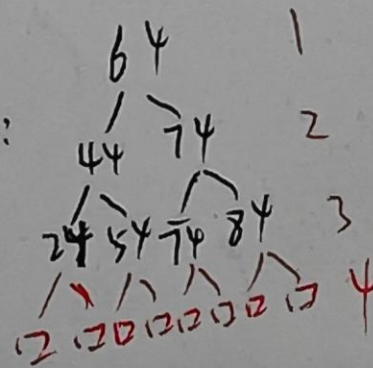 64 1
: 44 74 2
24 54 74 84 3
4